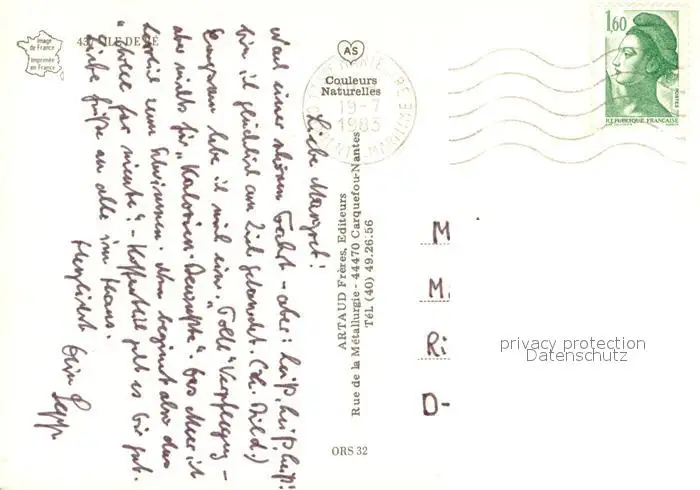 Image
de France
Imprimée
en France
437 ILE DE RÉ
AS
Couleurs
Naturelles
19-7
1983
1,60
POSTES
REPUBLIQUE FRANÇAISE
Liebe Margret!
Nach einer schönen Fahrt - aber: heiß, heiß, heiß!
bin ich glücklich am Ziel gelandet. (s. Bild.)
Empfangen habe ich mit eine "Tolle" Verpflegung -
aber nichts für "Kalorien-Bewußte". Das Meer ist
herrlich zum Schwimmen. Nun beginnt also das
"dolce far niente". - Hoffentlich geht es Dir gut.
Liebe Grüße an alle im Haus.
Herzlichst
ARTAUD Frères, Editeurs
Rue de la Métallurgie - 44470 Carquefou-Nantes
Tél. (40) 49.26.56
ORS 32
M
M
Ri
D-
privacy protection
Datenschutz